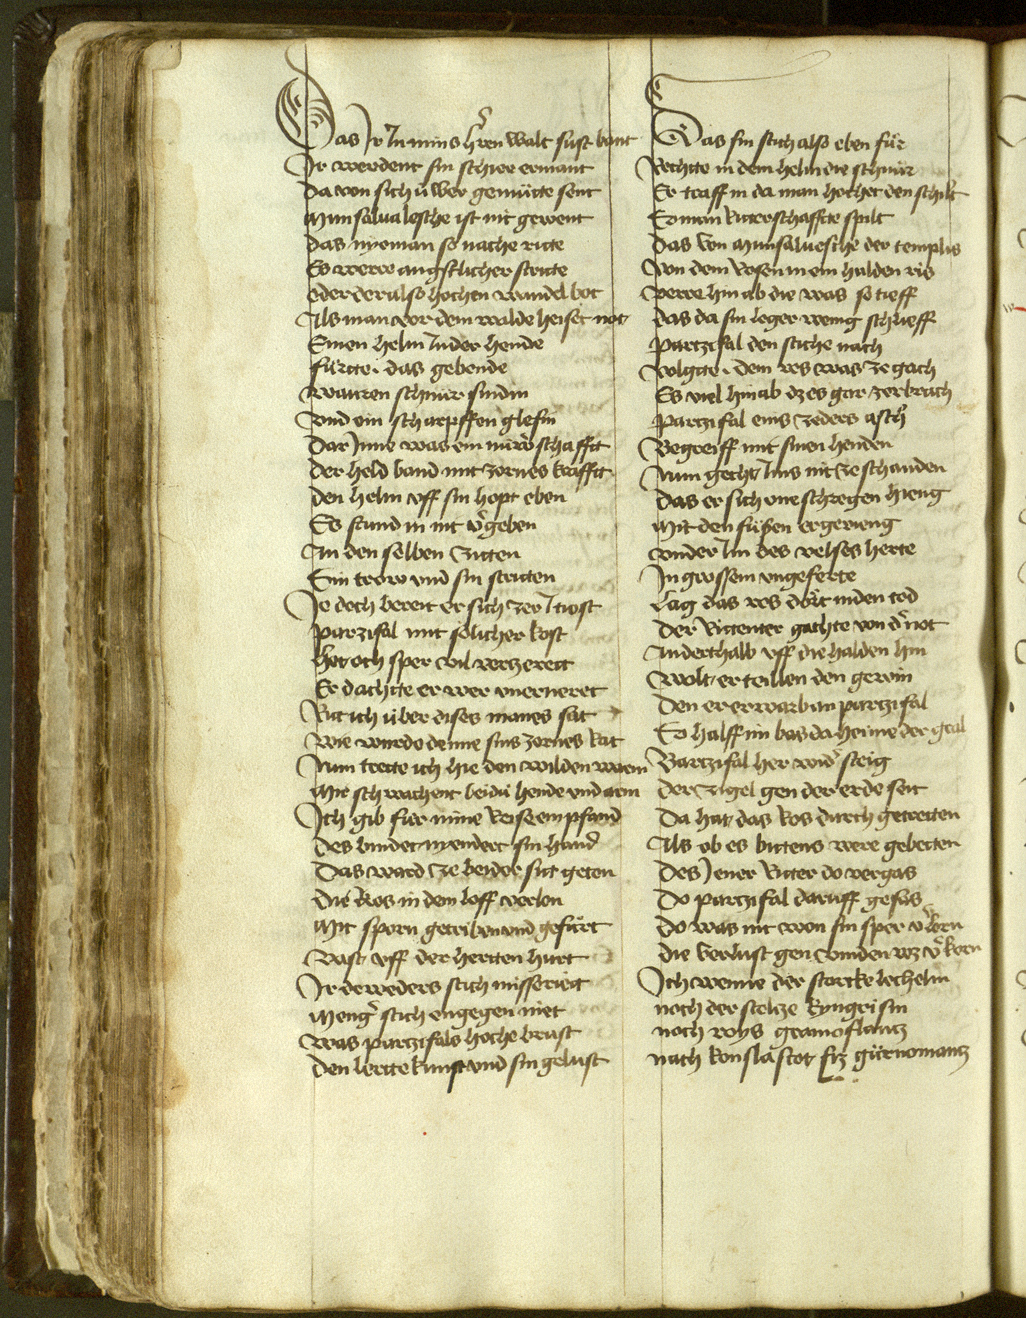 Das Ir In mins hren walt sust bant
Ir werdent sin schier ermant
Da von sich ú wer gemütte sent
Munsalualesche ist nit gewent
Das nyeman so nache ritte
Es were angstlicher stritte
Oder der also hochen wandel bot
Als man vor dem walde heiset not
Einen helm In der hende
fůrtte · das gebende
Warren schnür sindin
Vnd ein scharpffen glefin
Dar Inne was ein núw schafft
Der held band mit zornes krafft
Den helm vff sin hopt eben
Es stund in nit vgeben
An den selben zitten
Sin trow vnd sin stritten
Je doch bereit er sich zer Tiost
Parzifal mit sölicher kost
Het och sper vil verzerett
Er dachtte er wer vnerneret
Rit ich über dises manes sat
Wie wurde denne sins zornes Rat
Nun trette ich hie den wilden warm
Mir schwachent beidú hende vnd arm
Ich gib für mine Reise ein pfand
Des bindet niendert sin hand
Das ward ze beider sit geton
Die Ros in dem loff verlon
Mit sporn getriben vnd gefürt
Vast vff der hertten hurt
Ir deweders stich misseriet
Meng stich engegen niet
Was parzifals hoche brust
Den lertte kunst vnd sin gelust
Das sin stich also eben für
Rechtte in dem helm die schnür
Er traff in da man hochet den schilt
So man Ritterschaffte spilt
Das Von Munsaluesche der templis
Von dem Rosen in ein halden ris
Verre hin ab die was so tieff
Das da sin leger wenig schlieff
Partzifal den stiche nach
Volgtte · dem ros was ze gach
Es viel hin ab dz es gar zerbrach
Partzifal eins zeders asch
Begreiff mit sinen henden
Nun gecht Ims nit ze schanden
Das er sich one schregen hieng
Mit den füssen er gevieng
Vnder Im des velses herte
In grossem vngeferte
Lag das ros dört niden tod
Der Rittenter gachte von d not
Anderthalb vff die halden hin
Wolt er teillen den gewin
Den er erwarb an partzifal
Es halff im bas da heime der gral
Bartzifal her wid steig
Der zúgel gen der erde seit
Da hat das Ros durch getretten
Als ob es bittens were gebetten
Des Jener Ritter do vergas
Do partzifal daruff gesas
Do was nit won sin sper vlorn
Die verlust gen vinden wz vkorn
Ich wenne der starcke lechelin
noch der stoltze kyngrisin
noch roys gramoflantz
nach konslascot fiz gurnomantz